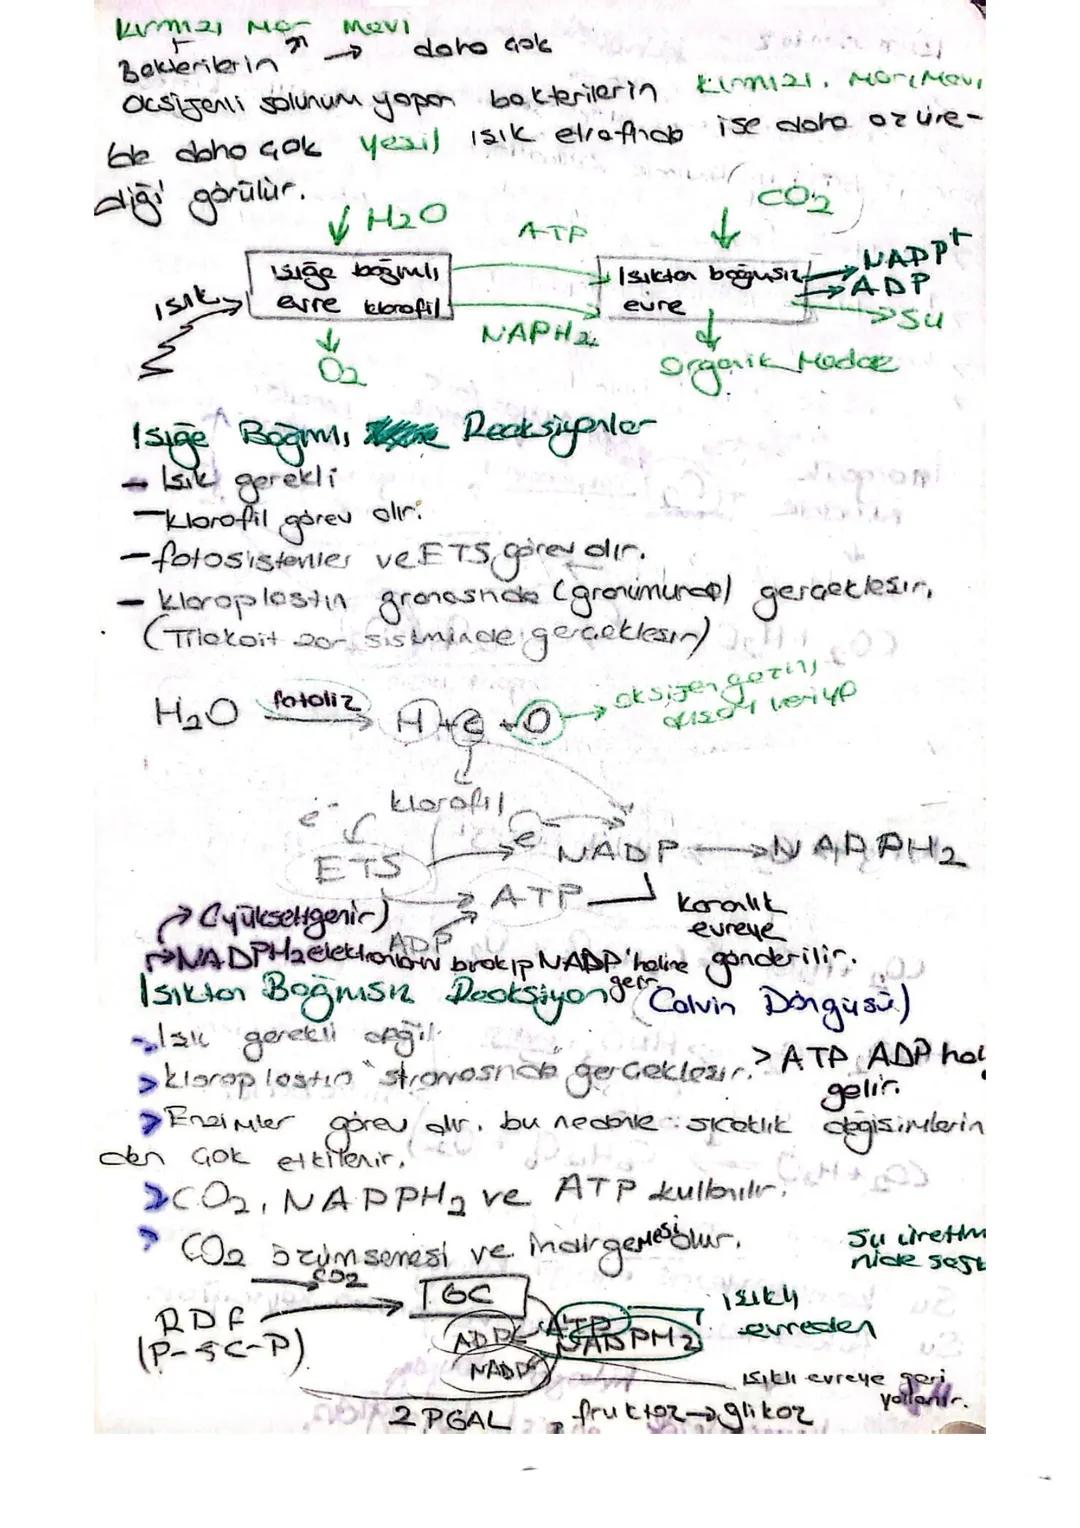 Kırmızı Mor Mavi
Bakterilerin → daha çok
Oksijenli solunum yapan bakterilerin kırmızı, Mor, Mavi,
de daha çok yeşil ışık etrafında ise daha az üre-
diği görülür.
H2O
ATP
CO2
Işığa bağımlı
evre klorofil
Işıktan bağımsız
evre
NADP+
ADP
Su
ışık
NAPH2
O2
Organik Madde
Işığa Bağımlı Reaksiyonlar
- Işık gerekli
- klorofil görev alır.
- fotosistemler ve ETS görev alır.
- kloroplastın granasında (granumunda) gerçekleşir,
(Tilakoit zar sisteminde gerçekleşir)
H2O fotoliz → H + e + O → oksijen gazını
dışarı verilip
klorofil
e-
ETS
e
NADP → NADPH2
ATP
karanlık
evreye
gönderilir.
(yükseltgenir)
ADP
NADPH2 elektronlarını bırakıp NADP haline
gelir
Işıktan Bağımsız Reaksiyon (Calvin Döngüsü)
- Işık gerekli değil
> kloroplastın stromasında gerçekleşir. > ATP ADP hal
gelir.
> Enzimler görev alır. bu nedenle sıcaklık değişimlerin
den çok etkilenir.
> CO2, NADPH2 ve ATP kullanılır.
> CO2 özümsemesi ve indirgemesi olur.
Su üretim
CO2
RDF
(P-5C-P)
6C
ADP
ATP
NADPH2
NADP
ışıklı
evreden
ışıklı evreye geri
yollanır.
2 PGAL
fruktoz → glikoz